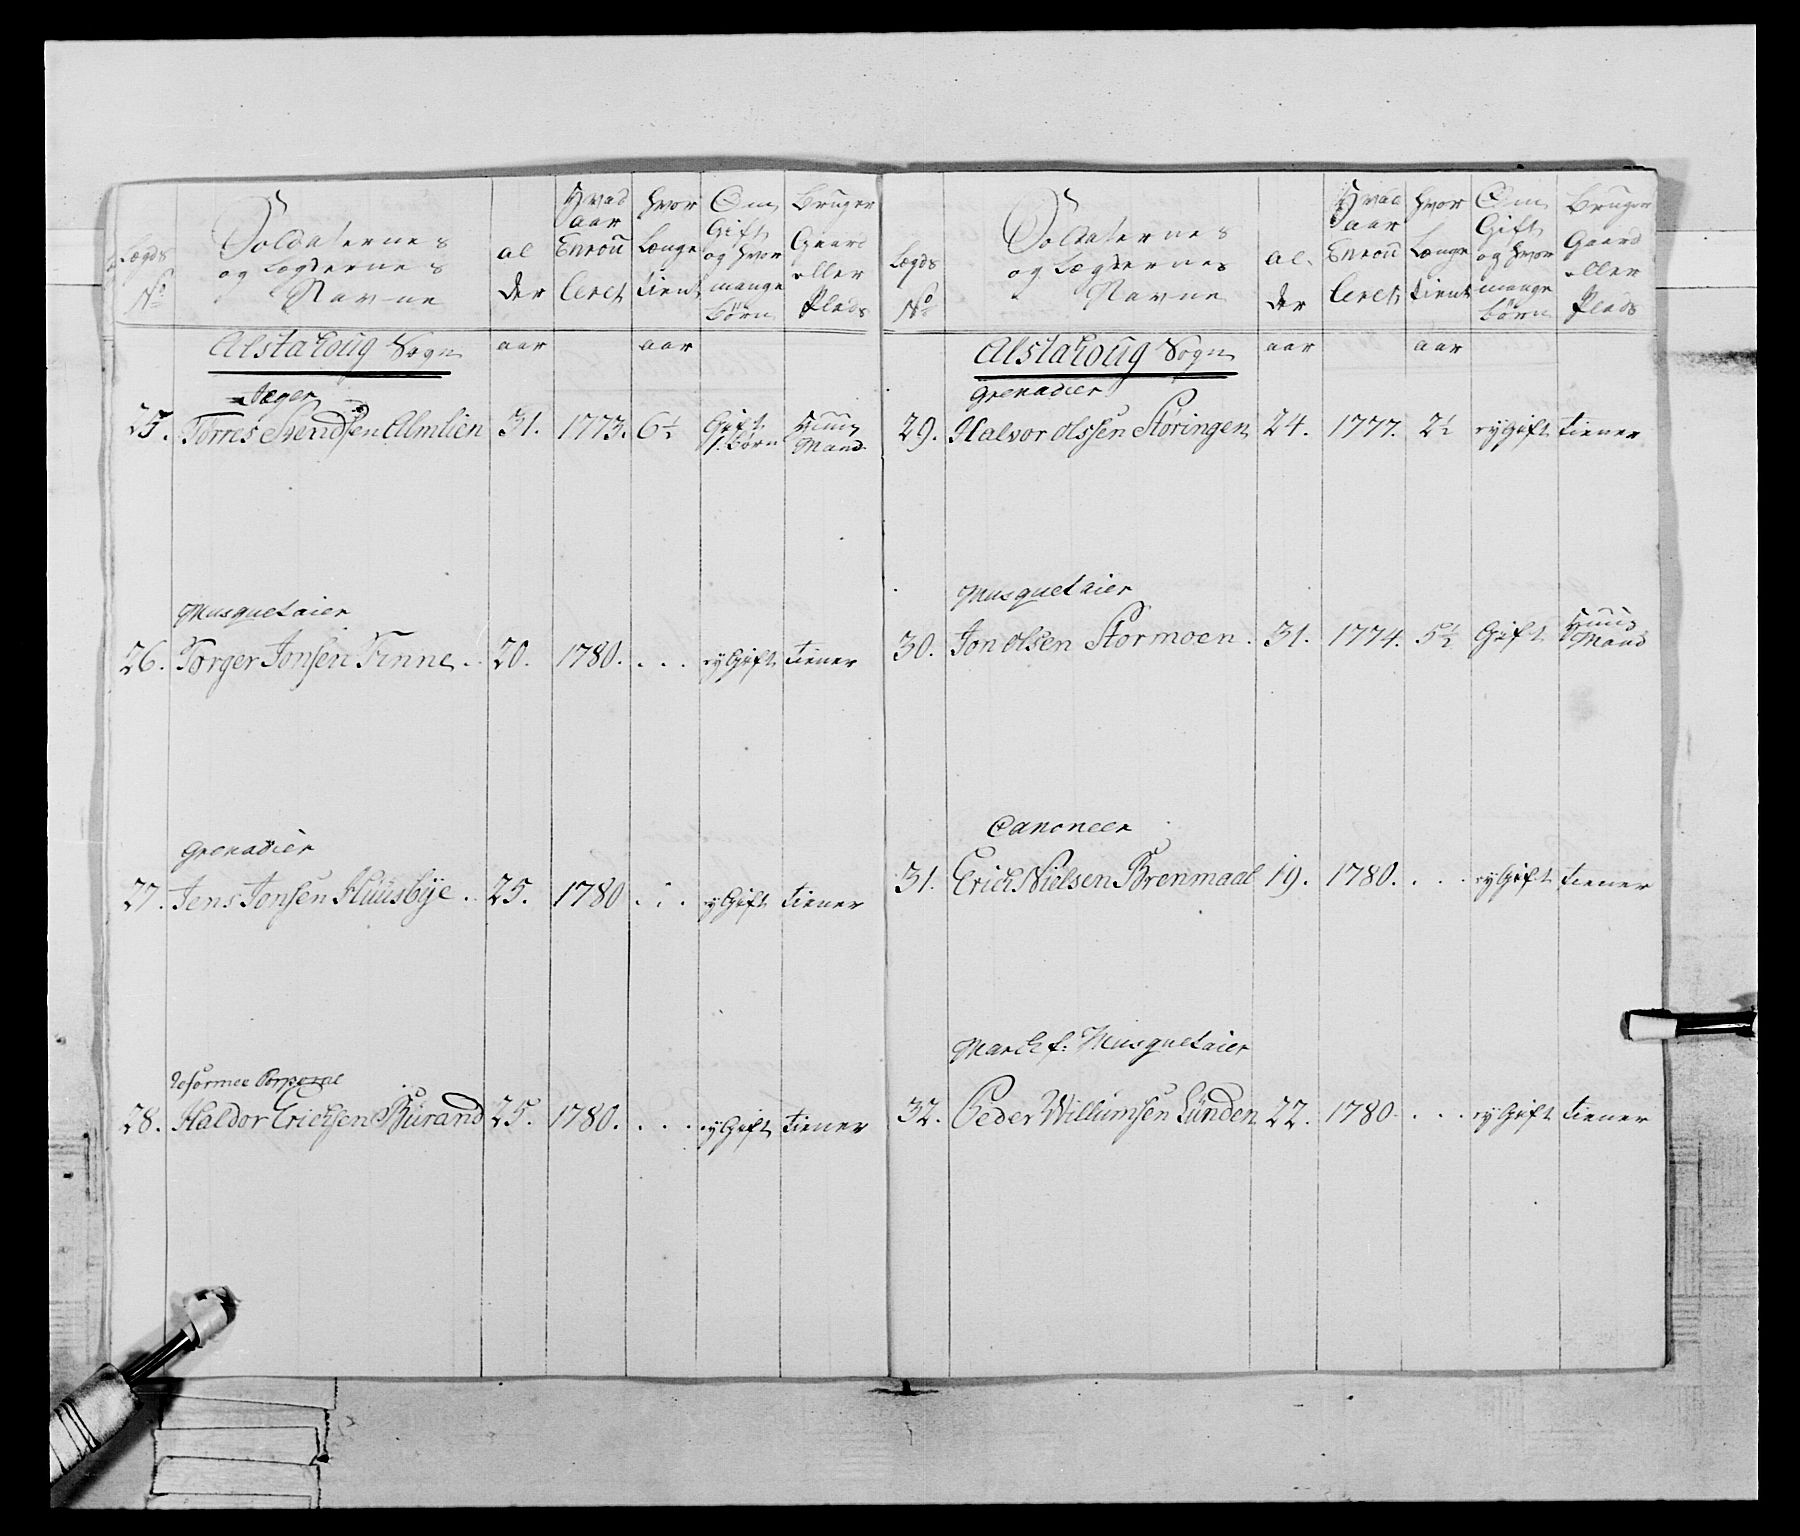 Lægds No
Soldaternes og Lægdernes Navne
al der
Hvad aar Enroulleret
hvor Længe tient
Om Gift og hvor mange börn
Bruger Gaard eller Plads
Alstahoug Sogn aar aar
Jæger
25. Torres Svendsen Almlien 31. 1773. 6½ Gift 1. börn Huus Mand
Musquetaier
26. Torger Jonsen Finne 20. 1780. . . . ey Gift tiener
Grenadier
27. Jens Jonsen Huusbye 25. 1780 . . . ey Gift tiener
Reformee Corporal
28. Haldor Erichsen Biürand 25. 1780. . . . ey Gift tiener
Lægds No
Soldaternes og Lægdernes Navne
al. der
Hvad aar Enroulleret
hvor Længe tient
Om Gift og hvor mange börn
Bruger Gaard eller Plads
Alstahoug Sogn aar aar
Grenadier
29. Halvor Olssen Støringen 24. 1777. 2½ ey Gift tiener
Musquetaier
30. Jon Olsen Stormoen 31. 1774. 5½ Gift Huus Mand
Canoneer
31. Erich Nielsen Brenmaal 19. 1780. . . . ey Gift tiener
Marck f: Musquetaier
32. Peder Willumsen Lünden 22. 1780. . . . ey Gift tiener